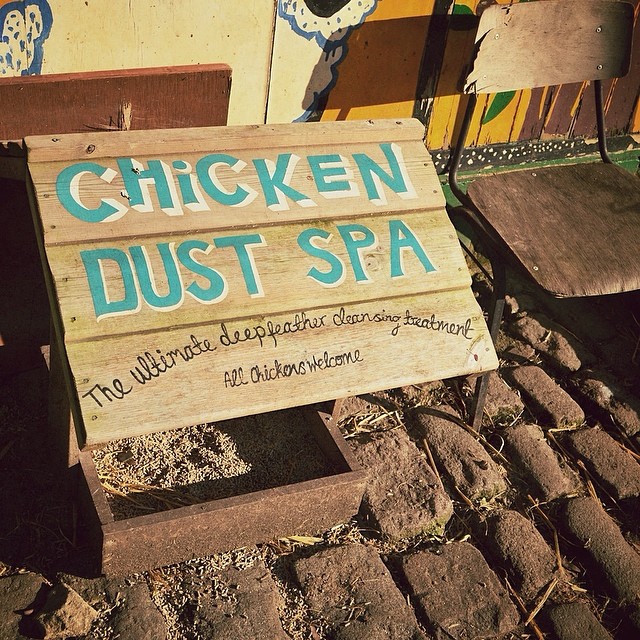 CHiCKEN
DUST SPA
The ultimate deep feather cleansing treatment
All Chickens Welcome